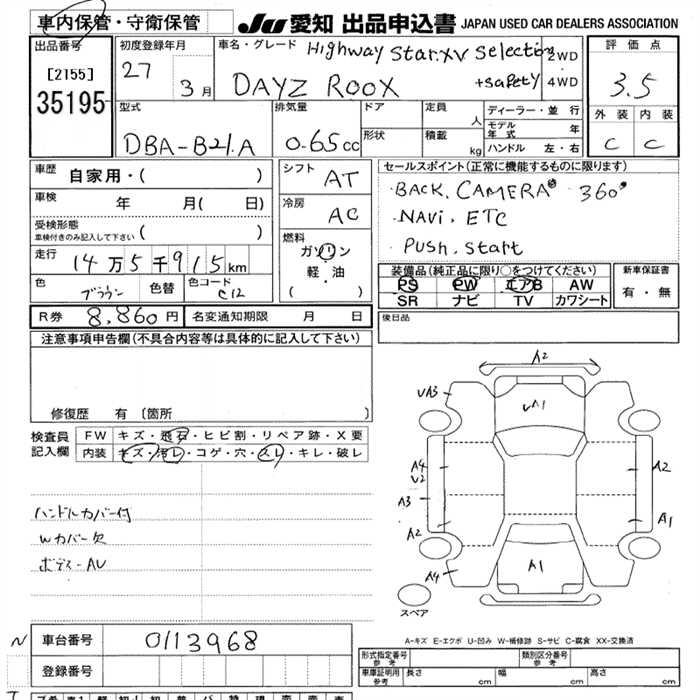 車内保管・守衛保管
JU 愛知 出品申込書 JAPAN USED CAR DEALERS ASSOCIATION
出品番号
[2155]
35195
初度登録年月
27
3月
車名・グレード
Highway Star XV Selection
DAYZ ROOX
+Safety
2WD
4WD
評価点
3.5
外装 内装
C C
型式
DBA-B21A
排気量
0.65cc
ドア
形状
定員
人
積載
kg
ディーラー・並行
モデル年式 年
ハンドル 左・右
車歴 自家用・( )
車検 年 月( 日)
受検形態
車検付きのみ記入して下さい ( )
走行 14万5千915km
色 ブラウン 色替 色コード C12
シフト AT
冷房 AC
燃料
ガソリン
軽・油
( )
セールスポイント(正常に機能するものに限ります)
BACK. CAMERA 360°
NAVi. ETC
PUSH. Start
装備品(純正品に限り○をつけてください)
PS PW エアB AW
SR ナビ TV カワシート
新車保証書
有・無
R券 8,860円 名変通知期限 月 日
後日品
注意事項申告欄(不具合内容等は具体的に記入して下さい)
修復歴 有 〔箇所
検査員記入欄
FW キズ・飛石・ヒビ割・リペア跡・X要
内装 キズ・汚レ・コゲ・穴・スレ・キレ・破レ
ハンドルカバー付
Wカバー欠
ボデー AU
A2
UA3
UA1
A4
U2
A2
A3
A2
A1
A1
A4
スペア
A-キズ E-エクボ U-凹み W-補修跡 S-サビ C-腐食 XX-交換済
N
車台番号 0113968
登録番号
形式指定番号 参考
類別区分番号 参考
車庫証明用 参考 長さ cm 幅 cm 高さ cm